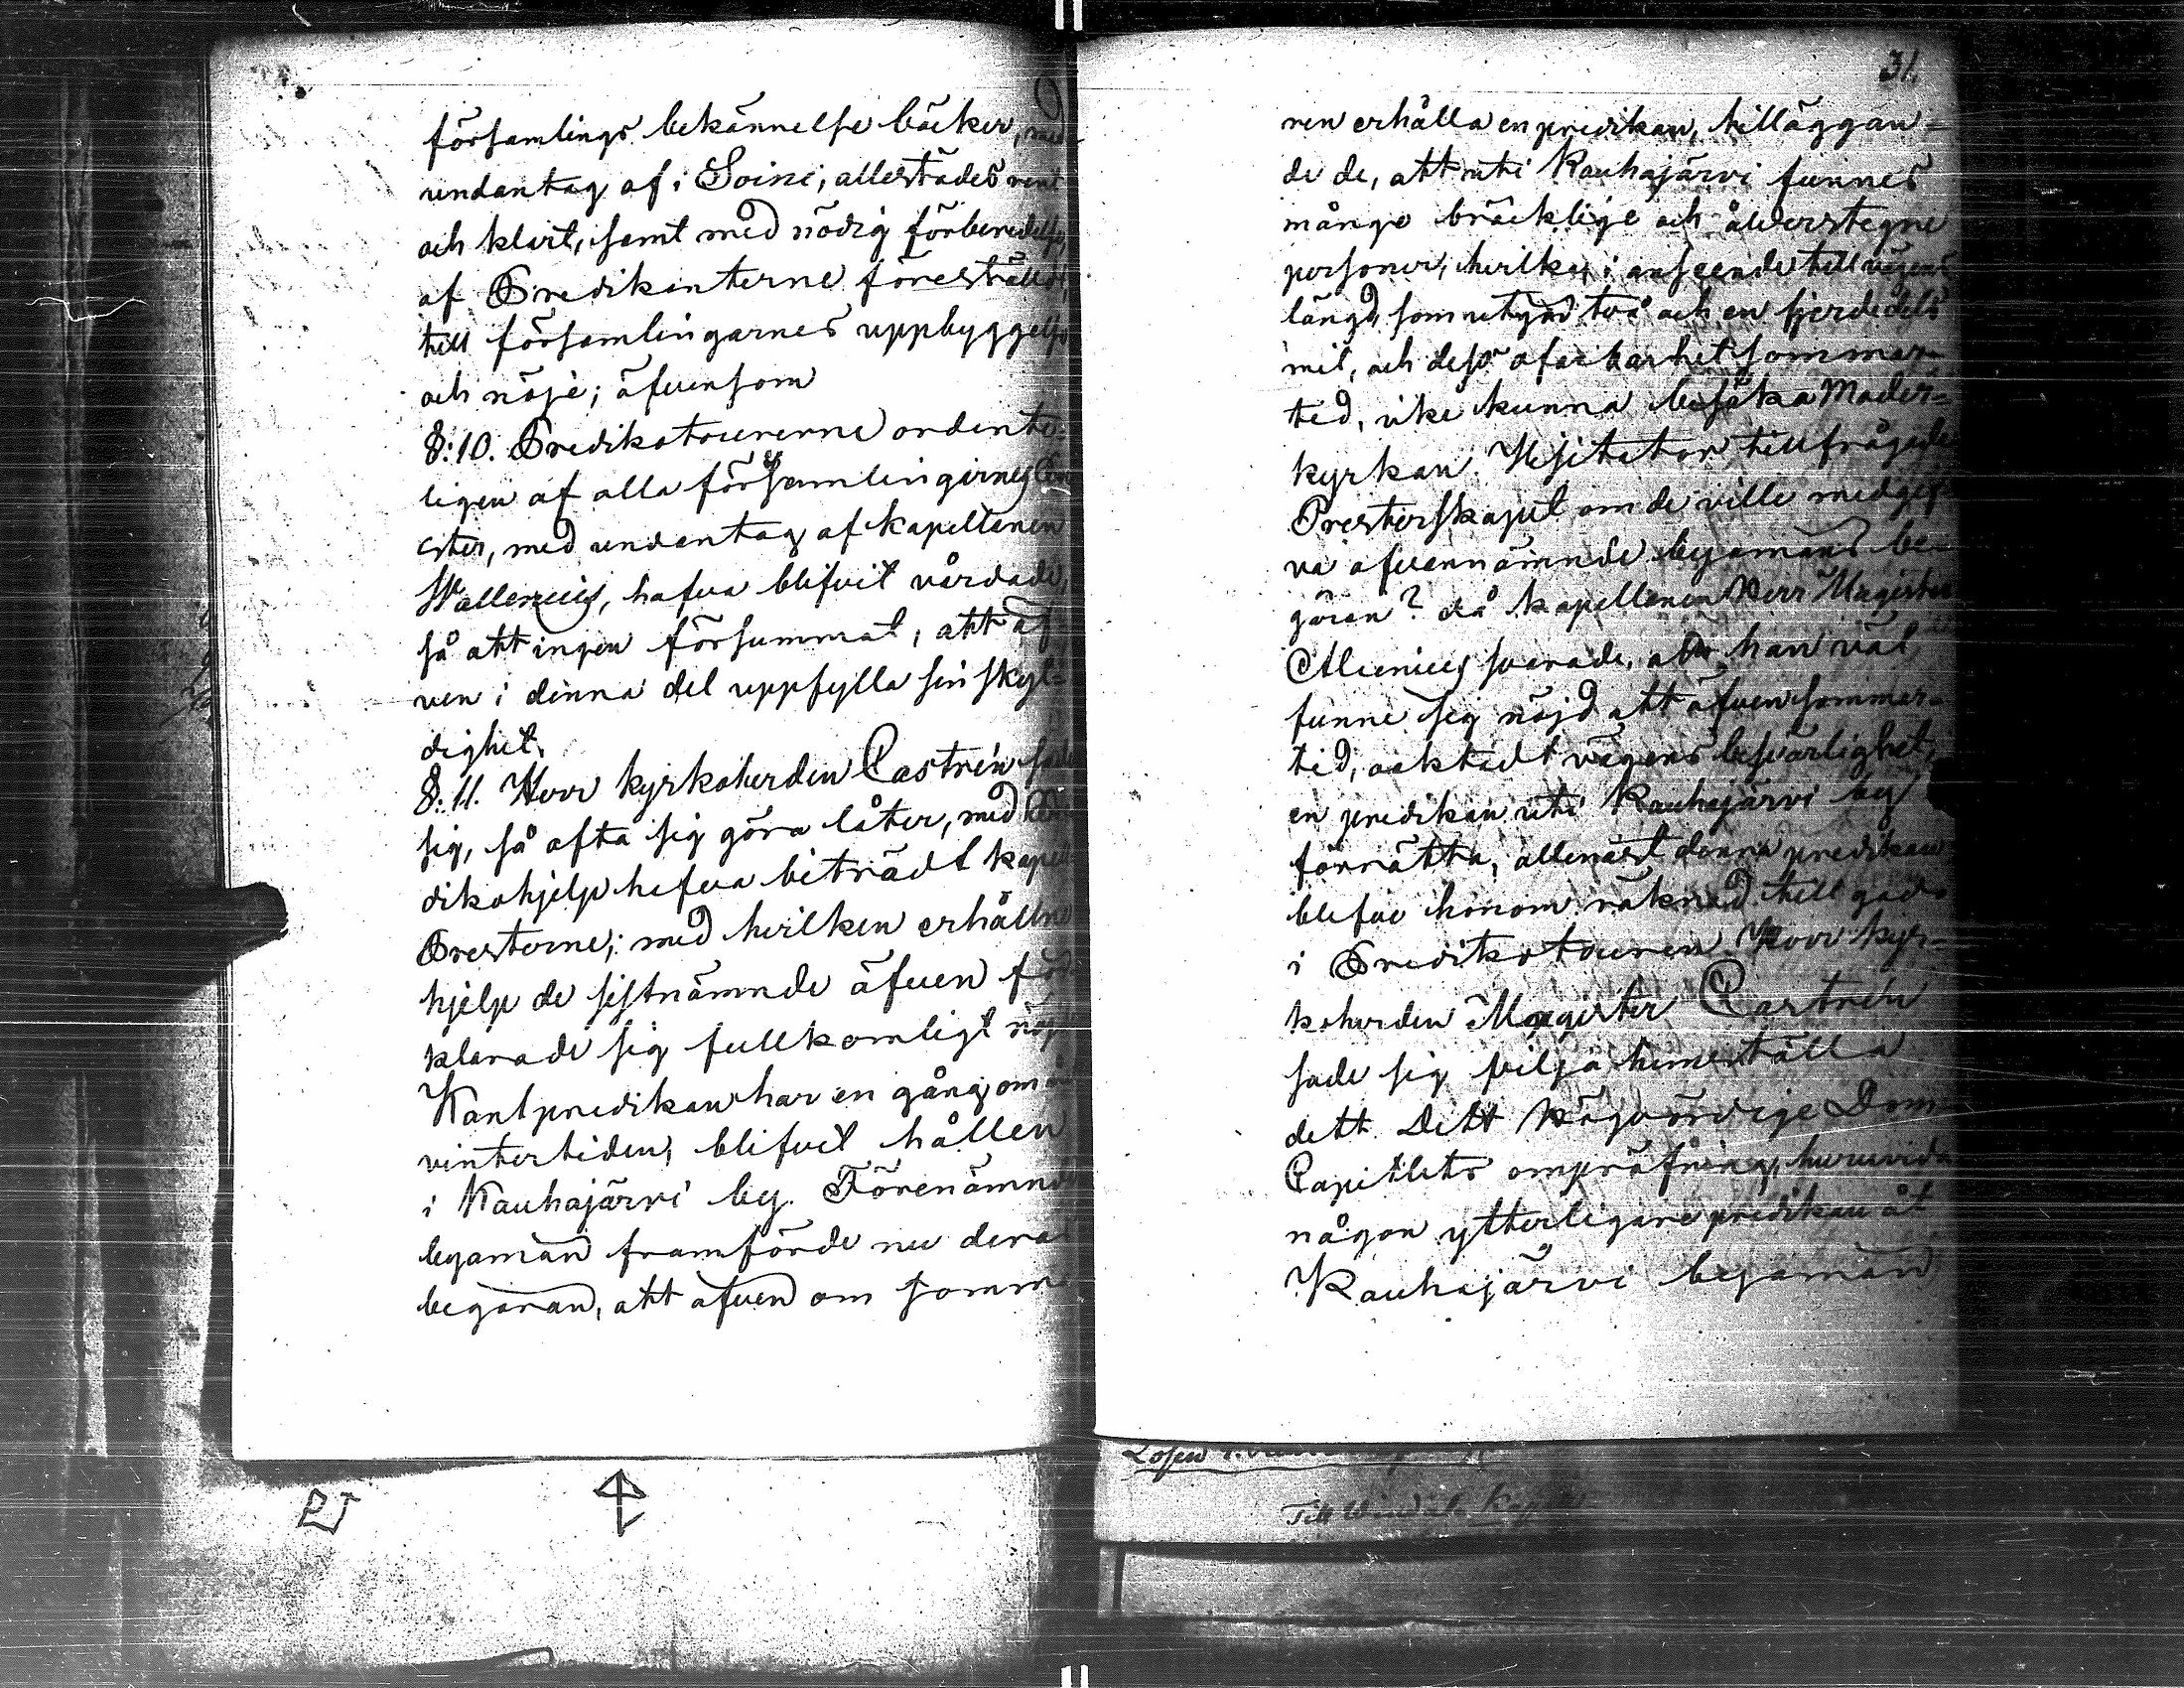 församlings bekännelse böcker, med
undantag af i Soini, allestädes rent
och klart, samt med nödig förberedelse,
af Predikanterne föreställdt,
till församlingarnes uppbyggelse
och nöje; äfvensom
§:10. Predikotourerne ordente=
ligen af alla församlingarnes
ster, med undantag af kapellanen
Wallenius, hafva blifvit vårdade,
så att ingen försummat, att äf=
ven i denna del uppfylla sin skyl=
dighet.
§:11. Herr kyrkoherden Castrén sade
sig, så ofta sig göra låter, med
dikohjelp hafva biträdt kapell
Presterne; med hvilken erhållne
hjelp de sistnämnde äfven för
klarade sig fullkomligt nöjde
Kantpredikan har en gång om
vintertiden, blifvit hållen
i Kauhajärvi by. Förenämnde
byamän framförde nu deras
begäran, att äfven om somm
31.
ren erhålla en predikan, tilläggan=
de de, att uti Kauhajärvi funnes
månge bräcklige och ålderstegne
personer, hvilka i anseende till vägens
längd, som utgör två och en fjerdedels
mil, och dess ofarbarhet sommar=
tid, icke kunna besöka Moder=
kyrkan. Visitator tillfrågade
Presterskapet om de ville medgif
va ofvannämnde byamäns be=
gäran? då kapellanen Herr Magister
Alcenius svarade, att han väl
funne sig nöjd att äfven sommar=
tid, oaktadt vägens besvärlighet,
en predikan uti Kauhajärvi by
förrätta, allenast denna predikan
blefve honom räknad till godo
i Predikotouren. Herr kyr=
koherden Magister Castrén
sade sig vilja hemställa
dett Ditt Högvördige Dom
Capitlets ompröfning, huruvida
någon ytterligare predikan åt
Kauhajärvi byamän
Till